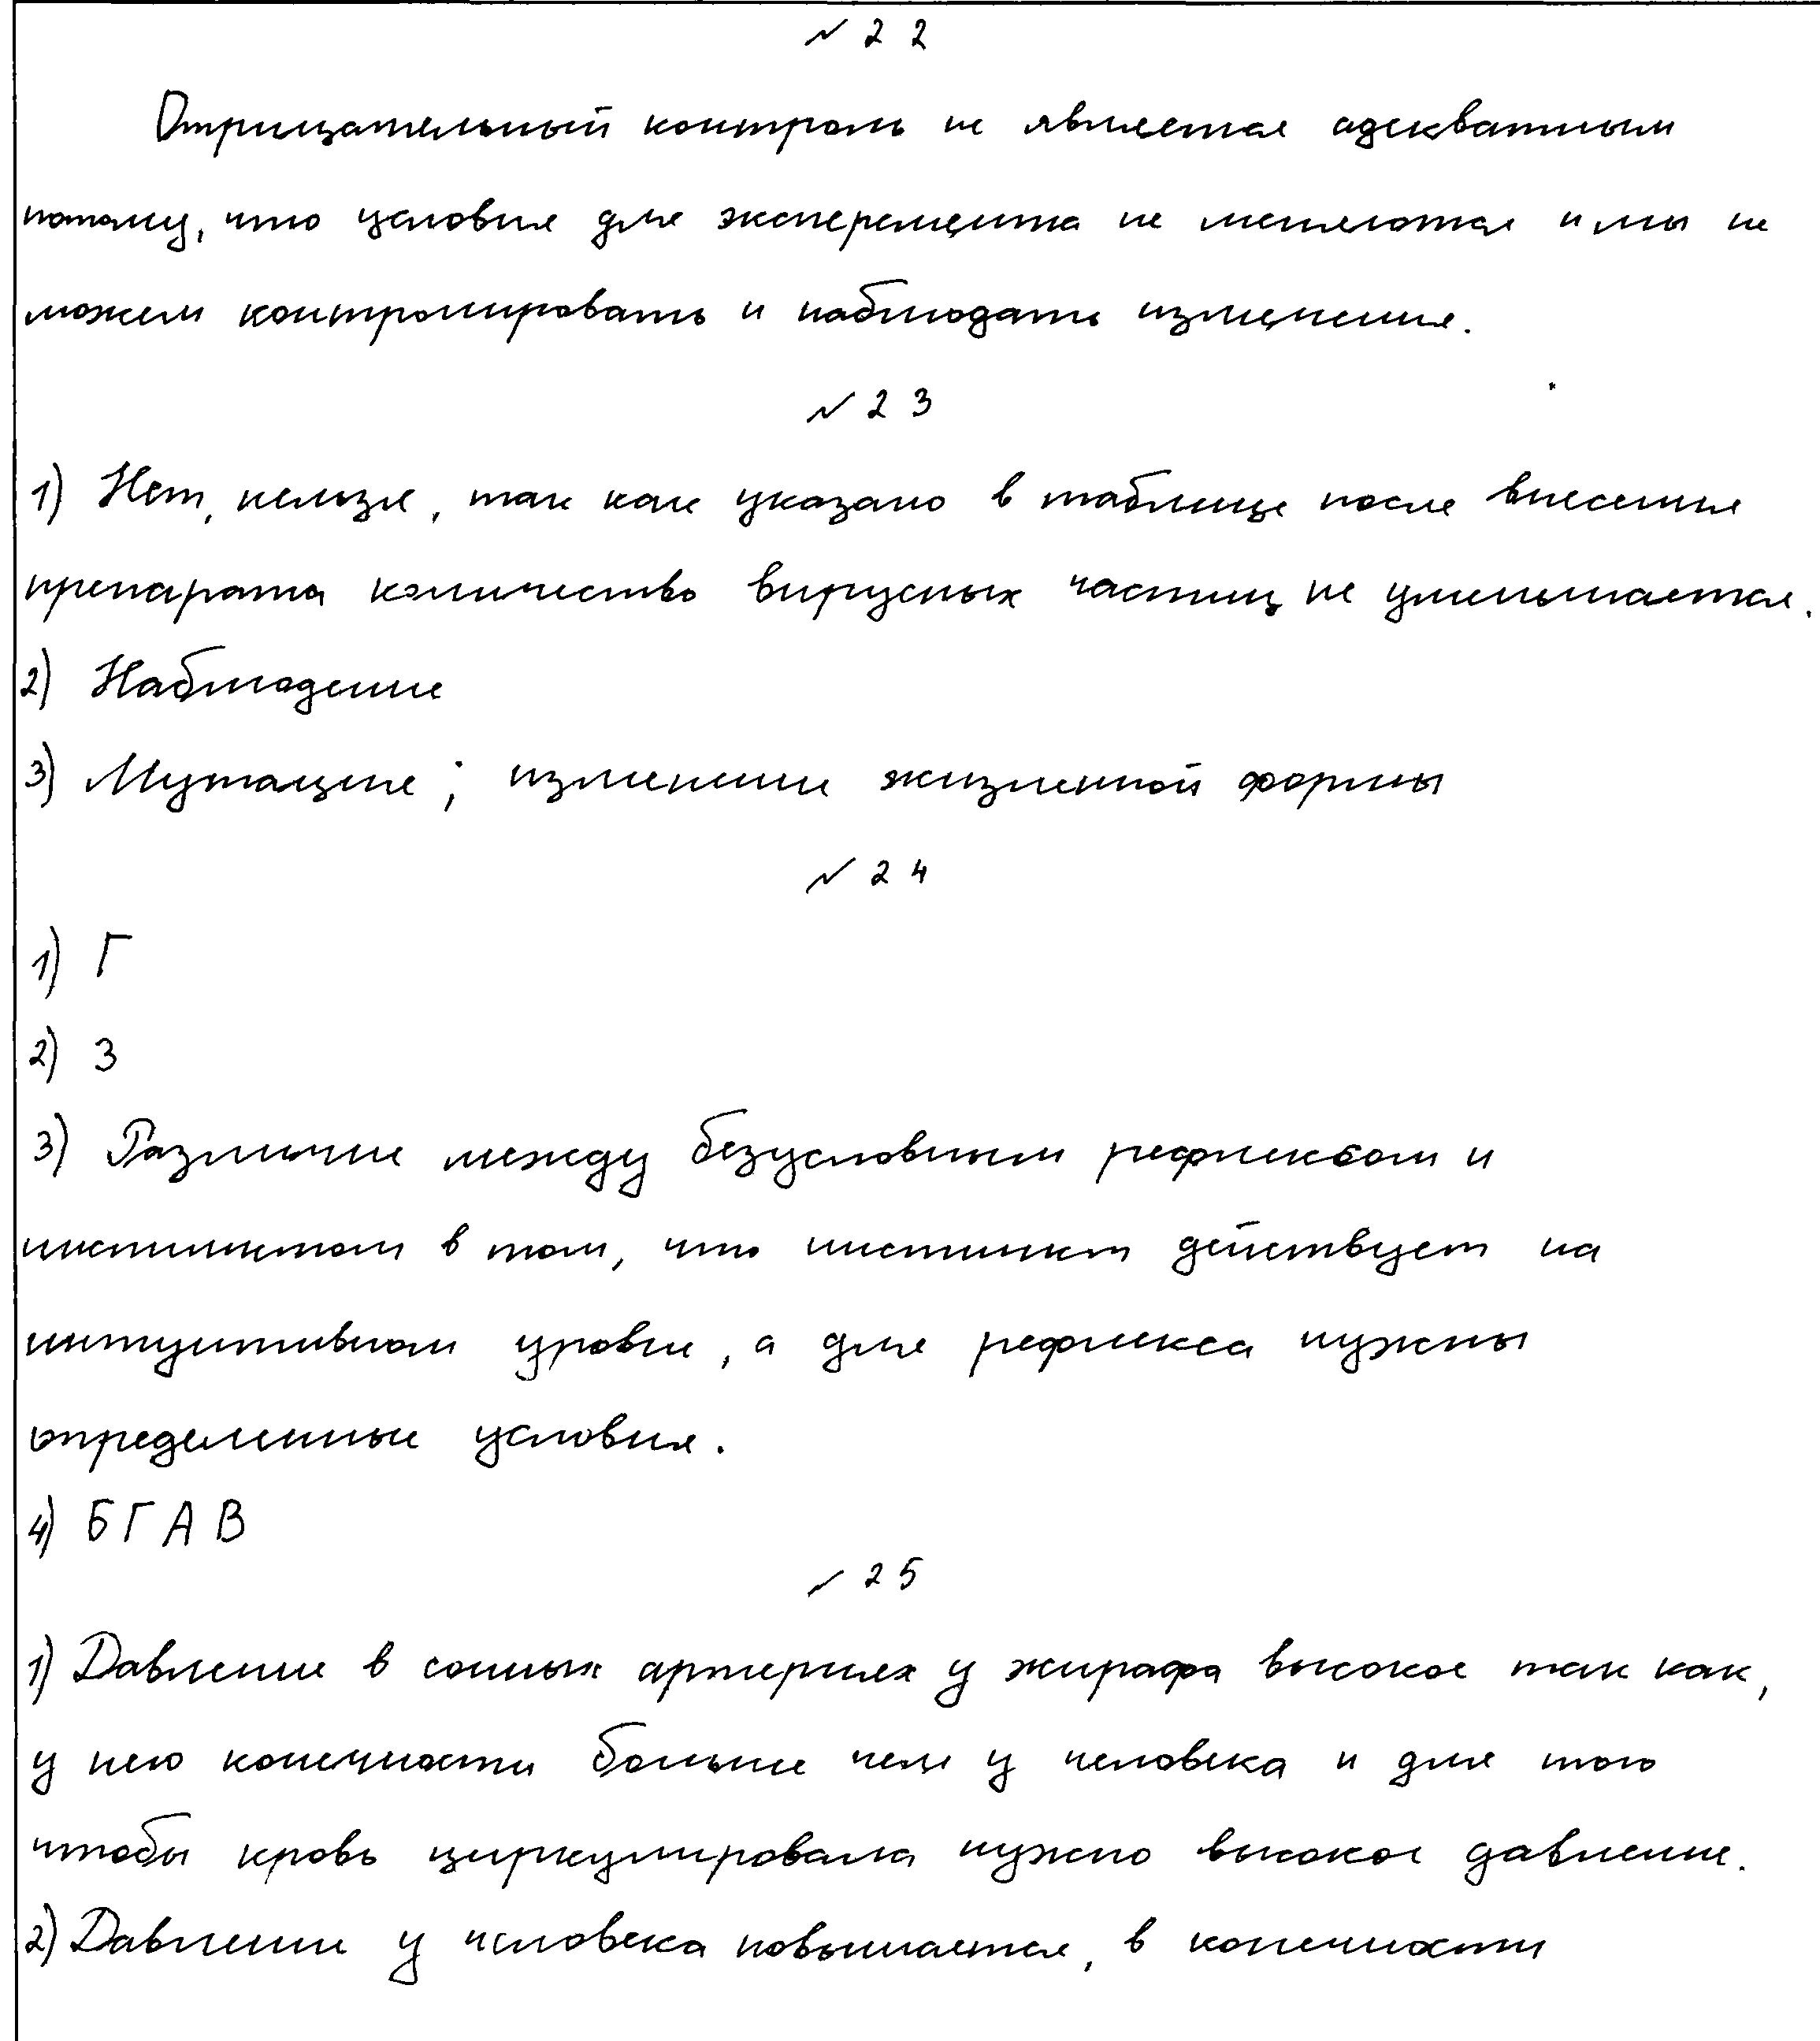 № 22
Отрицательный контроль не является адекватным
потому, что условия для эксперемента не меняются и мы не
можем контролировать и наблюдать изменения.
№ 23
1) Нет, нельзя, так как указано в таблице после внесения
препарата количество вирусных частиц не уменьшается.
2) Наблюдение
3) Мутация; изменение жизненной формы
№ 24
1) Г
2) 3
3) Различие между безусловным рефлексом и
инстинктом в том, что инстинкт действует на
интуитивном уровне, а для рефлекса нужны
определенные условия.
4) БГАВ
№ 25
1) Давление в сонных артериях у жирафа высокое так как,
у него конечности больше чем у человека и для того
чтобы кровь циркулировала нужно высокое давление.
2) Давление у человека повышается, в конечности